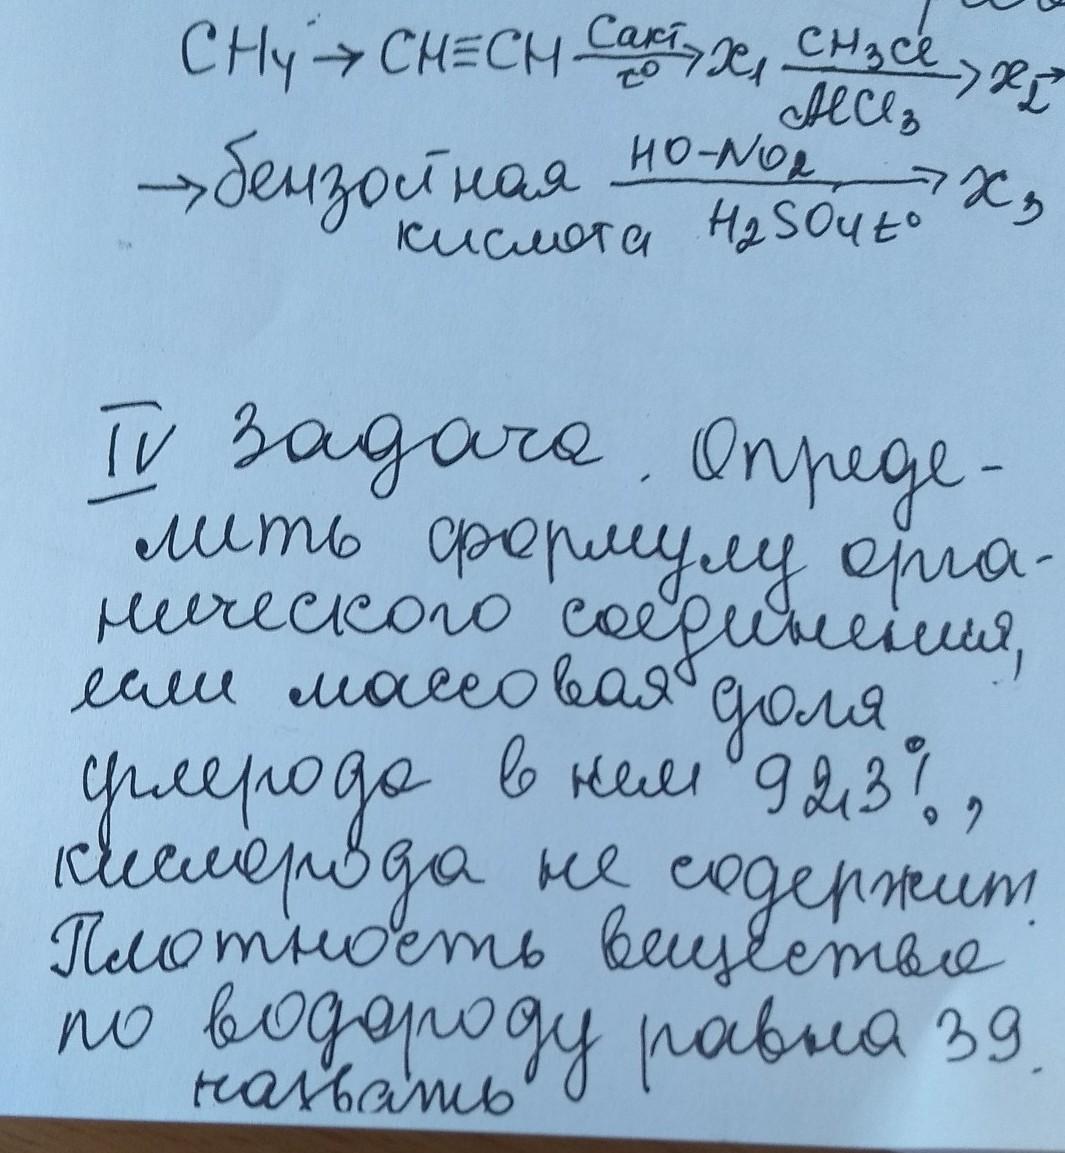 CH4 → CH≡CH —Cакт, t°→ x1 —CH3Cl / AlCl3→ x2→
→ бензойная —HO-NO2 / H2SO4 t°→ x3
кислота
IV Задача. Опреде-
лить формулу орга-
нического соединения,
если массовая доля
углерода в нем 92,3%,
кислорода не содержит.
Плотность вещества
по водороду равна 39.
назвать